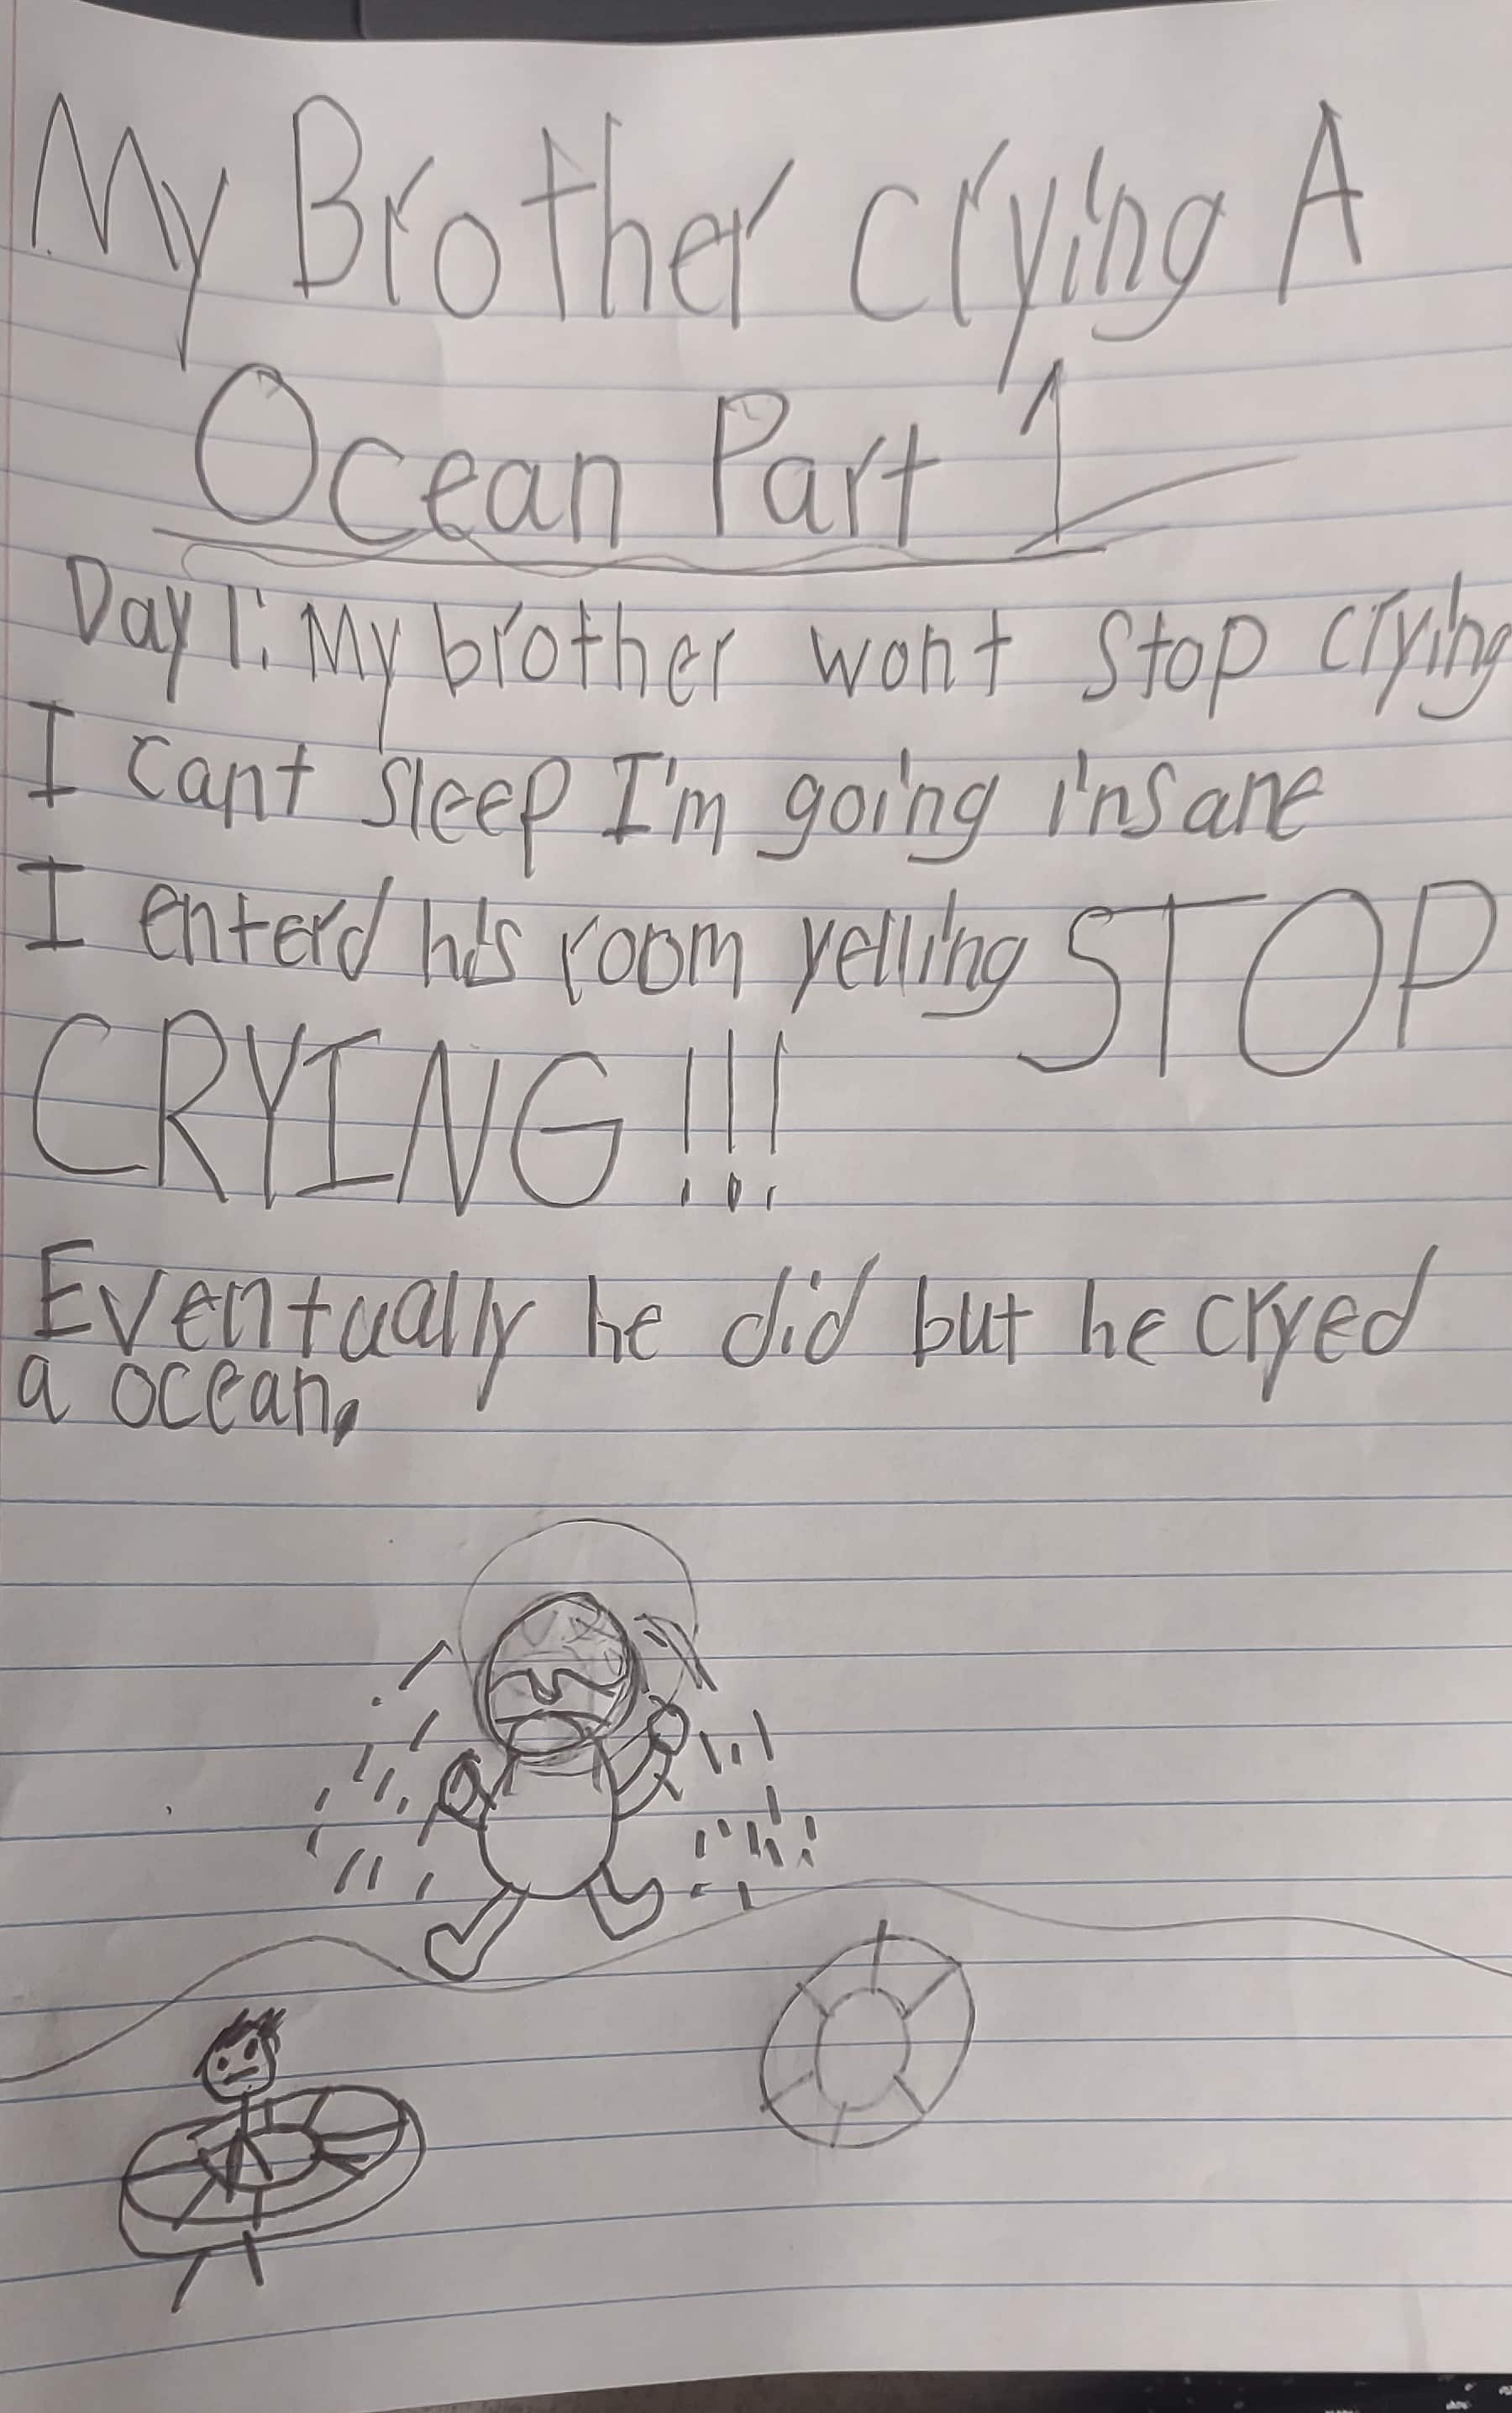 My Brother crying A
Ocean Part 1
Day 1: My brother wont stop crying
I cant sleep I'm going insane
I enterd his room yelling STOP
CRYING!!!
Eventually he did but he cryed
a ocean.